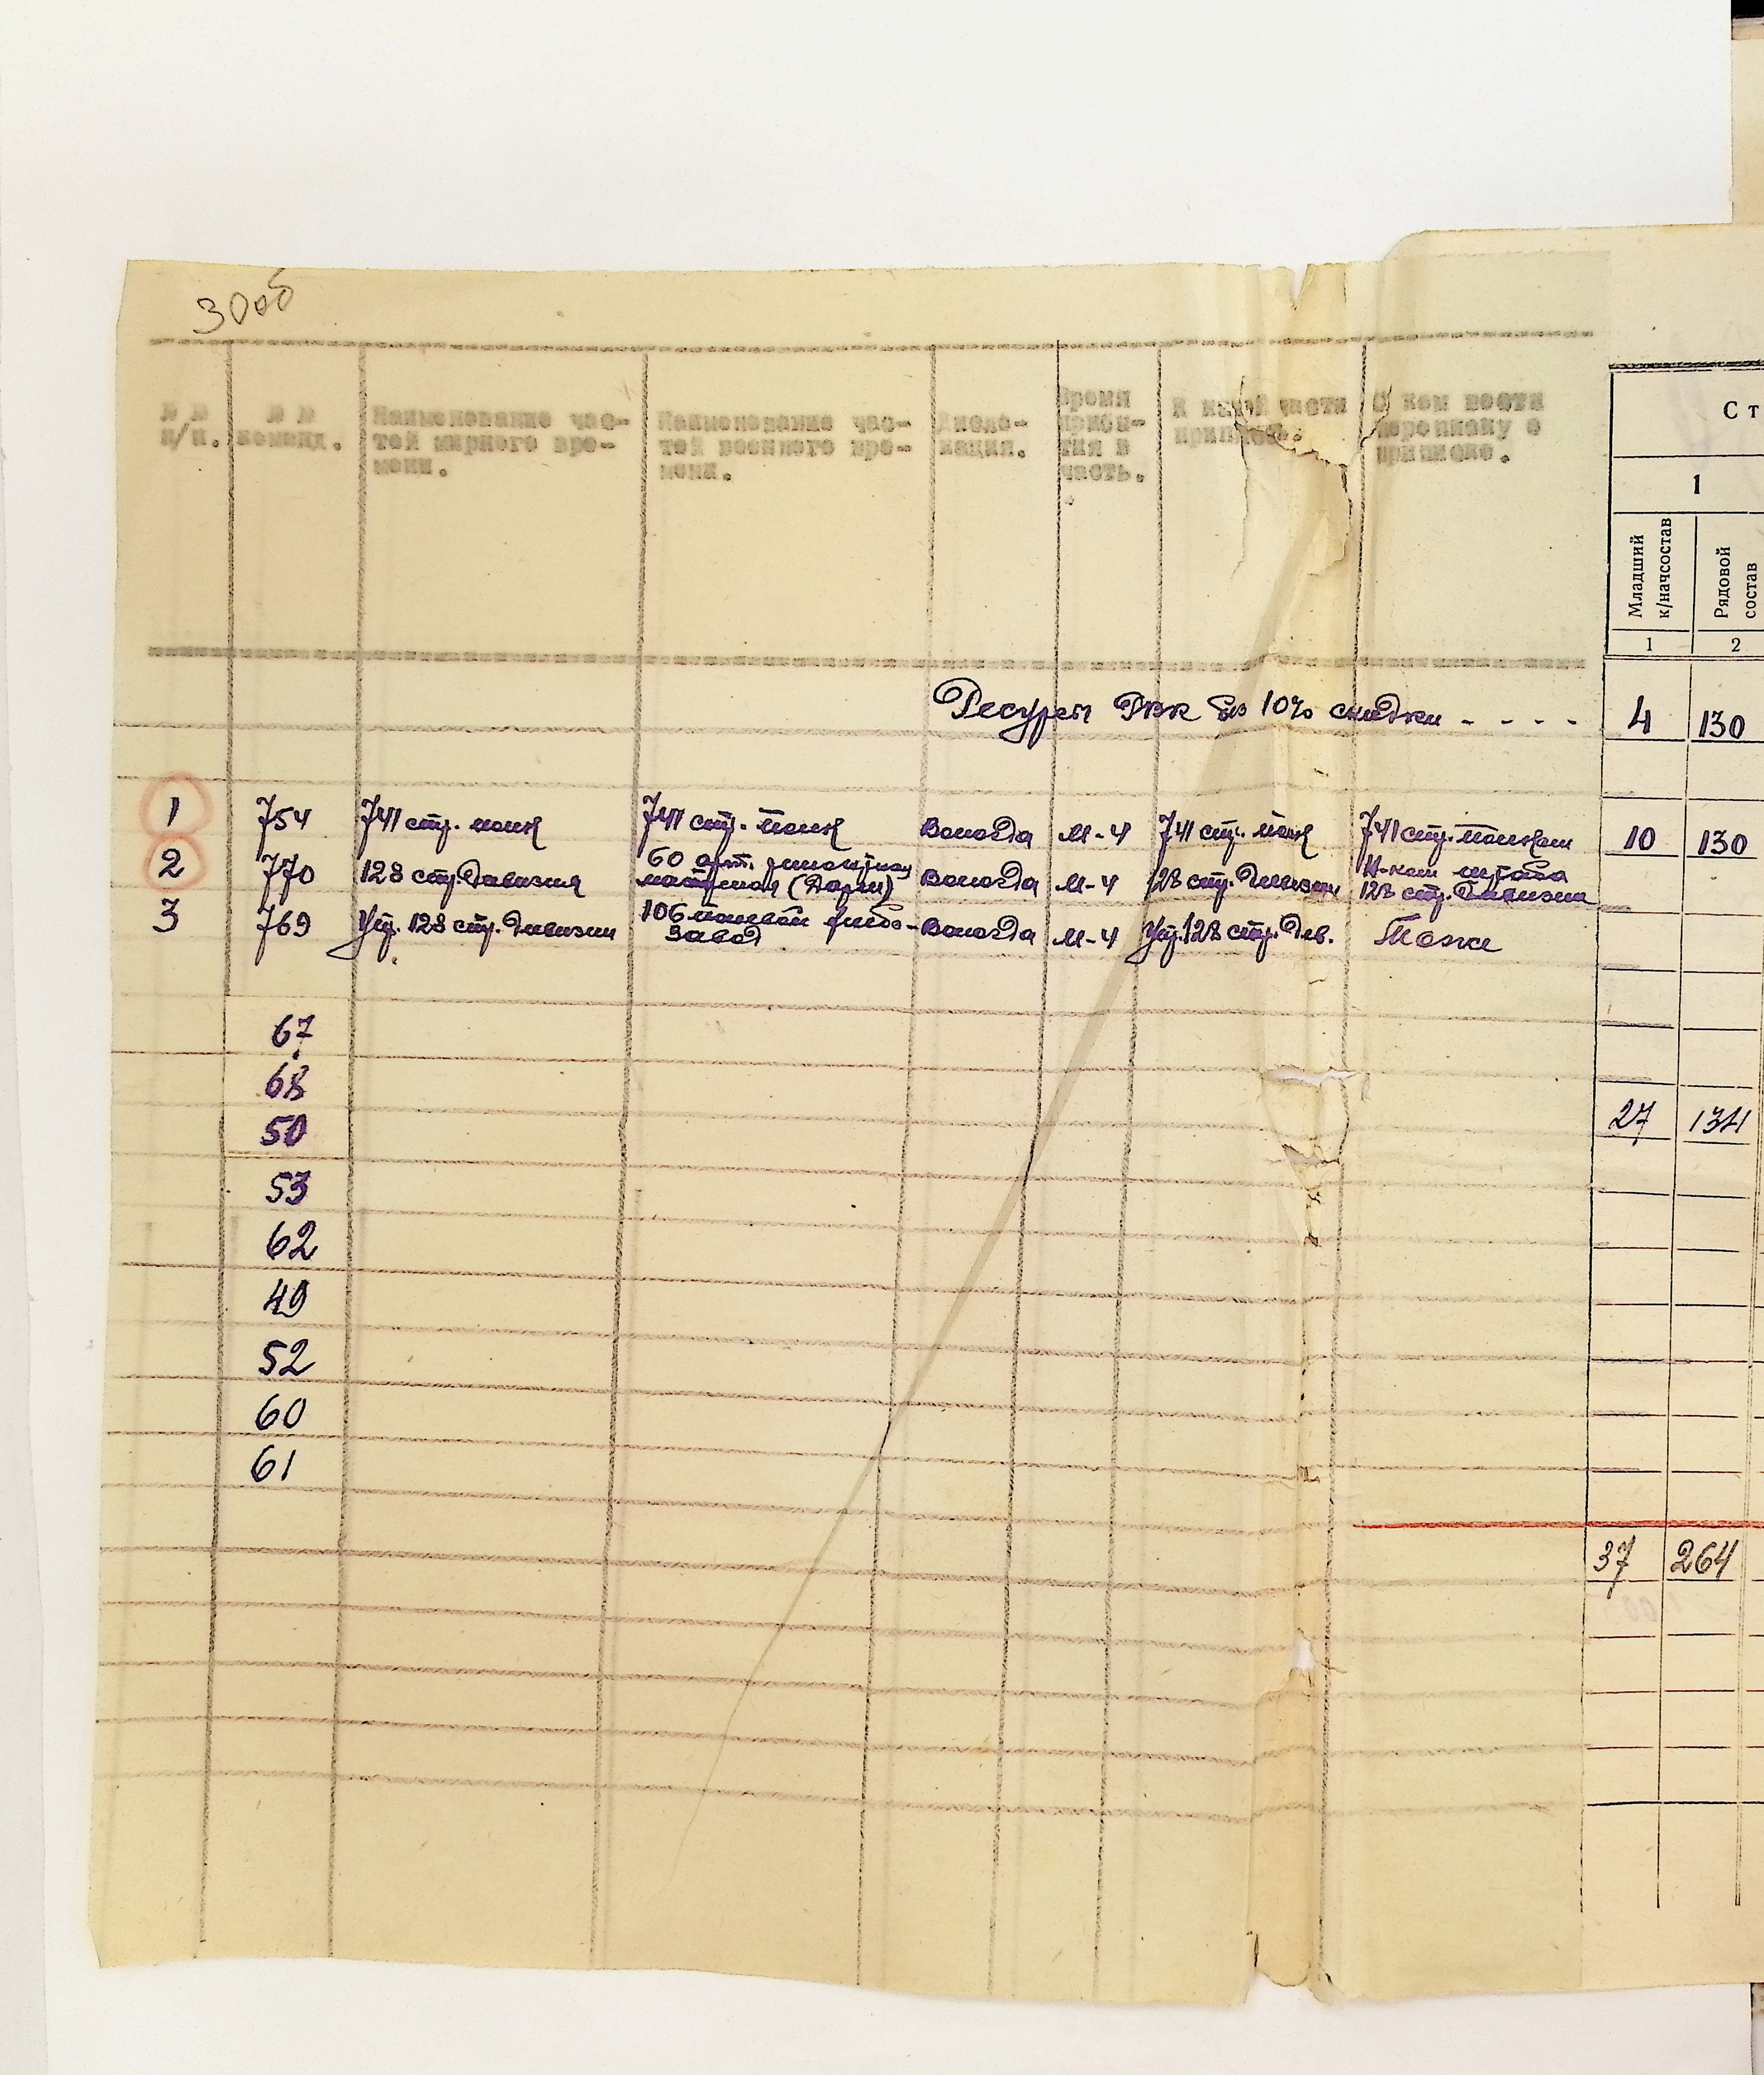 30об
№ №
п/п.
№ №
команд.
Наименование час-
тей мирного вре-
мени.
Наименование час-
тей военного вре-
мени.
Дисло-
кация.
Время
прибы-
тия в
часть.
К какой части
приписк.
С кем вести
переписку о
приписке.
Ст
1
Младший
к/начсостав
Рядовой
состав
1 2
Ресурсы РВК без 10% скидки - - - - 4 130
1 754 741 стр. полк 741 стр. полк Вологда М-4 741 стр. полк 741 стр. полком 10 130
2 770 128 стр. дивизия 60 арт.
(Дарм) Вологда М-4 128 стр. дивизии Н-ком штаба
128 стр. дивизии
3 769 Упр. 128 стр. дивизии 106 полевой хлебо-
завод Вологда М-4 Упр. 128 стр. див. Тоже
67
68
50 27 134
53
62
49
52
60
61
37 264